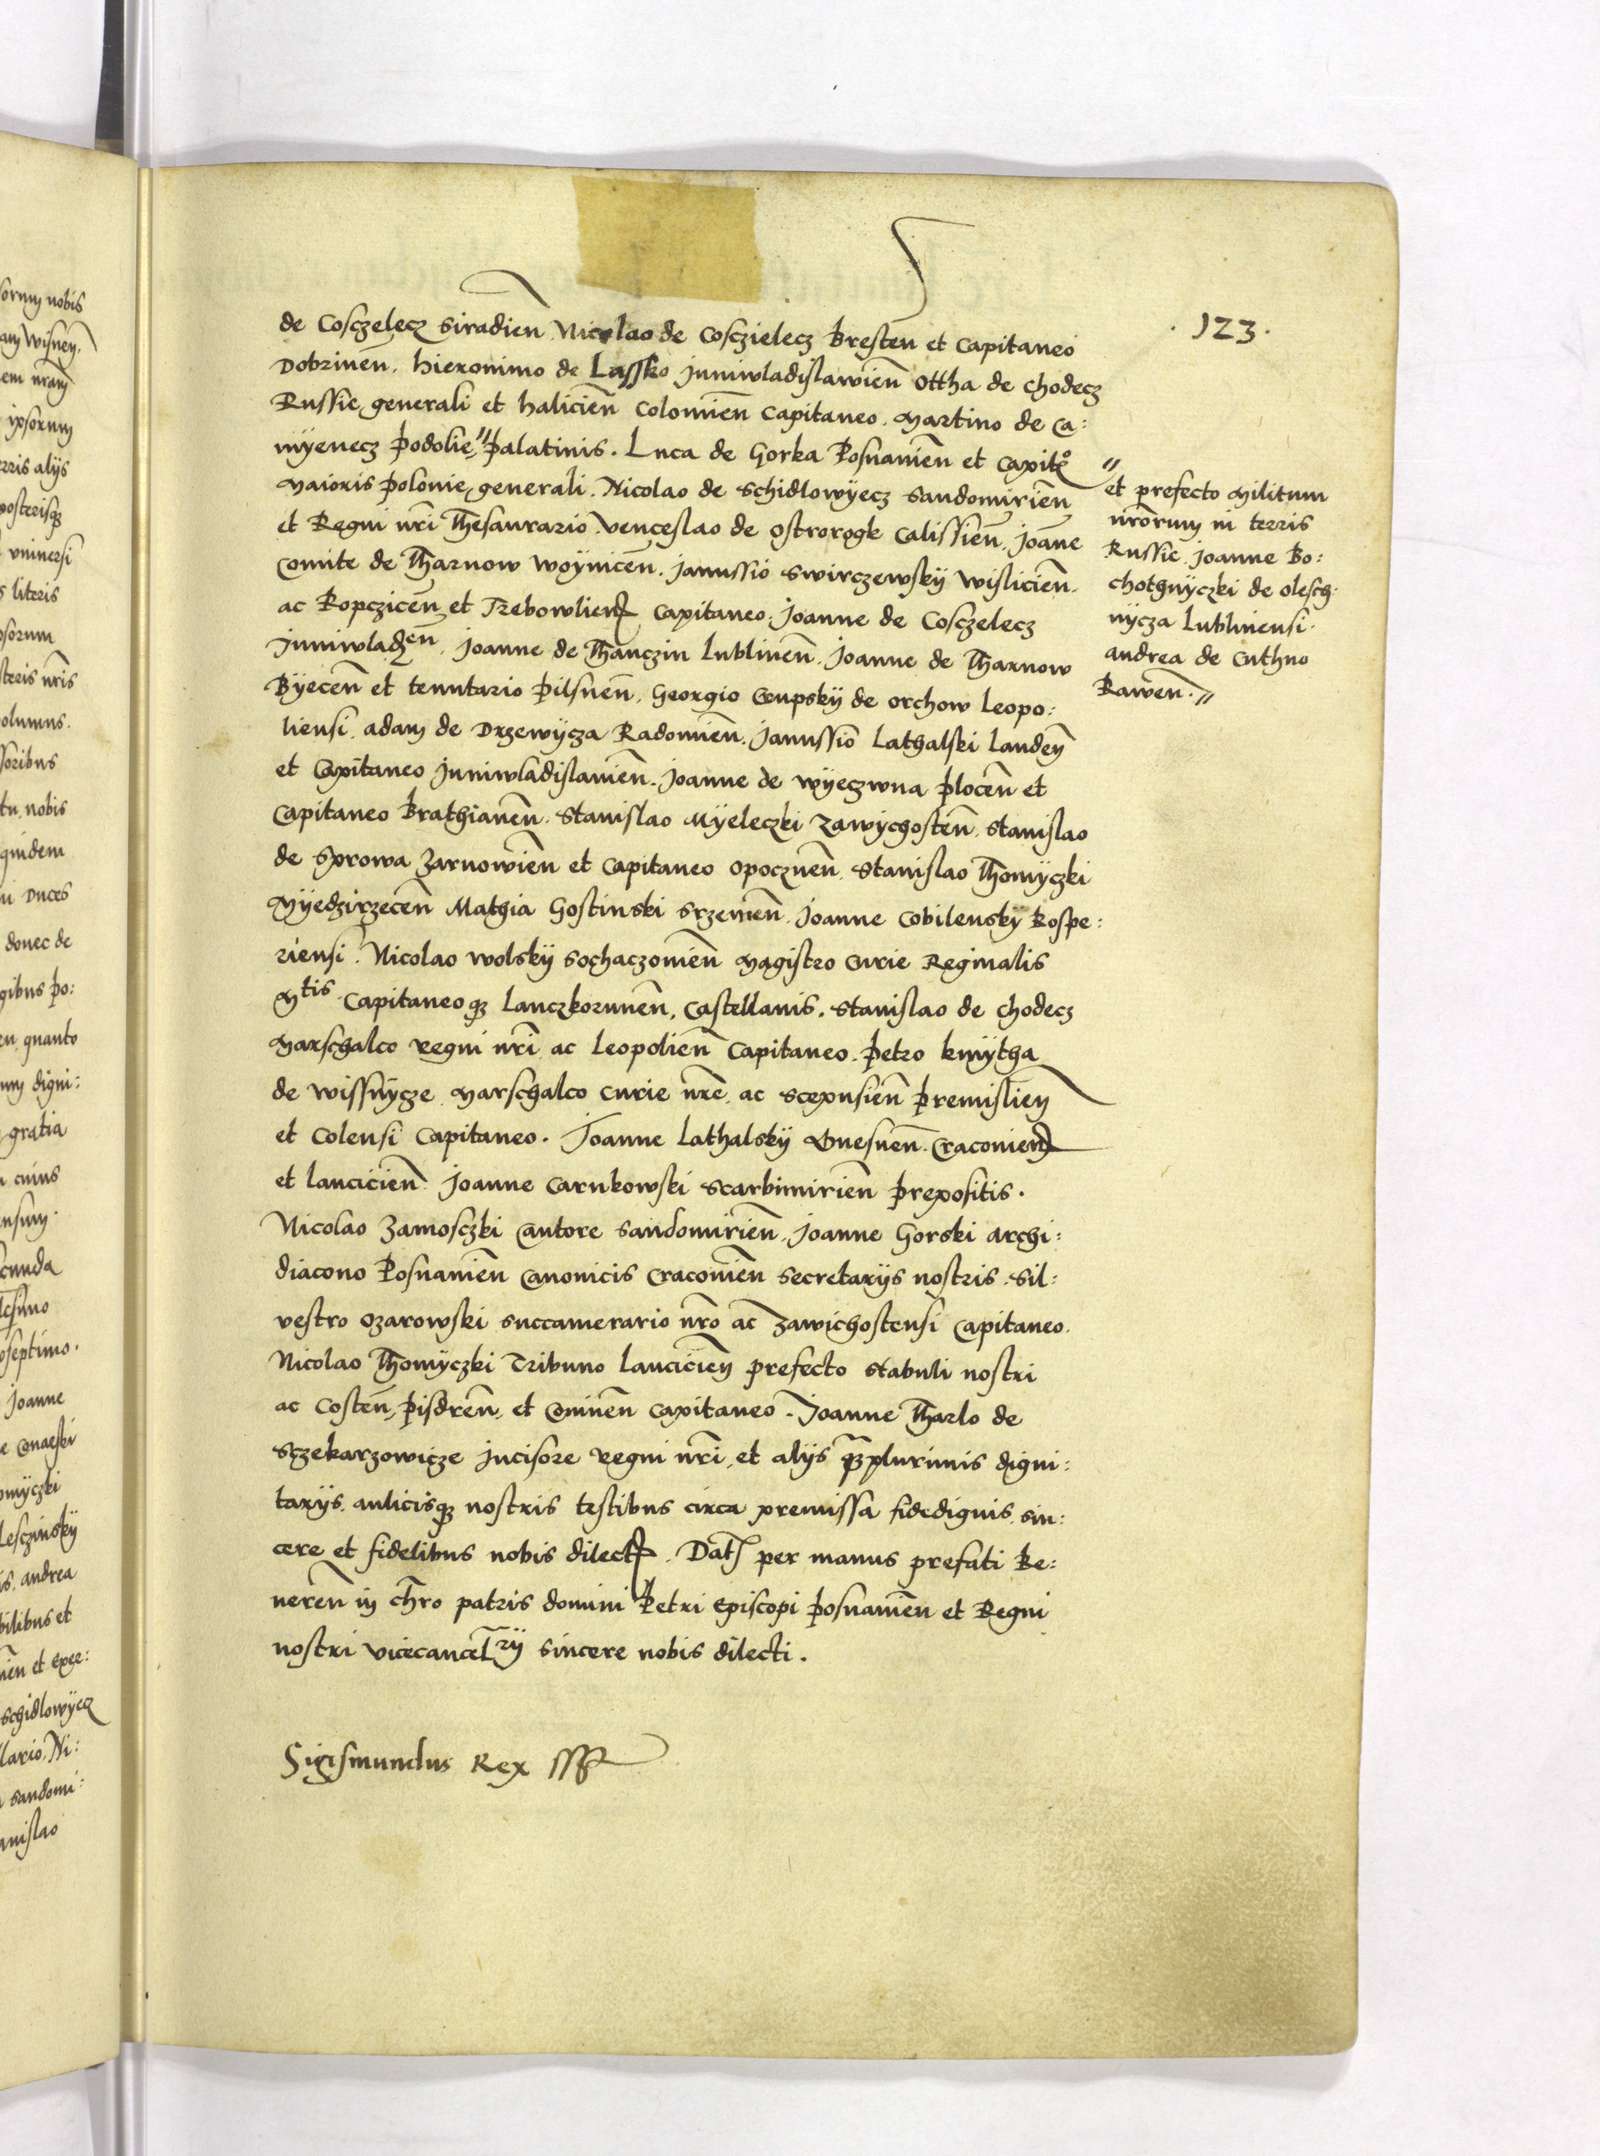 . 123 .
de Cosczelecz Siradien̄ Nicolao de Cosczielecz Bresten̄ et Capitaneo
Dobrinen̄. Hieronimo de Lassko Juniwladislawien̄ Ottha de Chodecz
Russie generali et Halicien̄ Colomien̄ Capitaneo. Martino de Ca:
mÿenecz Podolie, " Palatinis. Luca de Gorka Posnanien̄ et Capit͂o
Maioris Polonie generali. Nicolao de Schidlowÿecz Sandomirien̄
et Regni nr̄i Thesaurario Venceslao de Ostrorogk Calissien̄. Joan̄e
Comite de Tharnow Woynicen̄. Janussio Swirczewskÿ Wislicien̄.
ac Ropczicen̄ et Trebowlien̄ Capitaneo Joanne de Cosczelecz
Juniwladzen̄. Joanne de Thanczin Lublinen̄. Joanne de Tharnow
Bÿecen̄ et tenutario Pilsnen̄. Georgio Crupskÿ de Orchow Leopo:
liensi. Adam de Drzewÿcza Radomien̄. Janussio Lathalski Landen̄
et Capitaneo Juniwladislauien̄. Joanne de Wÿeczwna Plocen̄ et
Capitaneo Brathianen̄. Stanislao Mÿeleczki Zawÿchosten̄. Stanislao
de Sprowa Zarnowien̄ et Capitaneo Opocznen̄. Stanislao Thomÿczki
Mÿedzirzecen̄ Mathia Gostinski Srzemen̄. Joanne Cobilenskÿ Rospe:
riensi. Nicolao Wolskÿ Sochaczouien̄ Magistro Curie Reginalis
Mtis Capitaneoqꝫ Lanczkorunen̄. Castellanis. Stanislao de Chodecz
Marschalco regni nr̄i ac Leopolien̄ Capitaneo. Petro Kmÿtha
de Wissnÿcze Marschalco Curie nr̄e ac Scepusien̄ Premislien̄
et Colensi Capitaneo. Joanne Lathalskÿ Gnesnen̄. Cracouien̄
et Lancicien̄. Joanne Carnkowski Scarbimirien̄ Prepositis.
Nicolao Zamosczki Cantore Sandomirien̄. Joanne Gorski Archi:
diacono Posnanien̄ Canonicis Cracouien̄ Secretarÿs nostris. Sil:
vestro Ozarowski Succamerario nr̄o ac Zawichostensi Capitaneo.
Nicolao Thomÿczki Tribuno Lancicien̄ prefecto Stabuli nostri
ac Costen̄, Pisdren̄, et Coninen̄ Capitaneo. Joanne Tharlo de
Sczekarzowicze Incisore regni nr̄i, et alÿs qꝫplurimis digni:
tarÿs, aulicisqꝫ nostris testibus circa premissa fidedignis, sin:
cere et fidelibus nobis dilect̄. Dat̄ per manus prefati Re:
ueren̄ in chr̄o patris domini Petri Episcopi Posnanien̄ et Regni
nostri Vicecancellrÿ sincere nobis dilecti.
Sigismundus Rex sspt
" et prefecto militum
nr̄orum in terris
Russie. Joanne Bo:
chothnÿczki de Olesch
nÿcza Lublinensi.
Andrea de Cuthno
Rawen̄. "